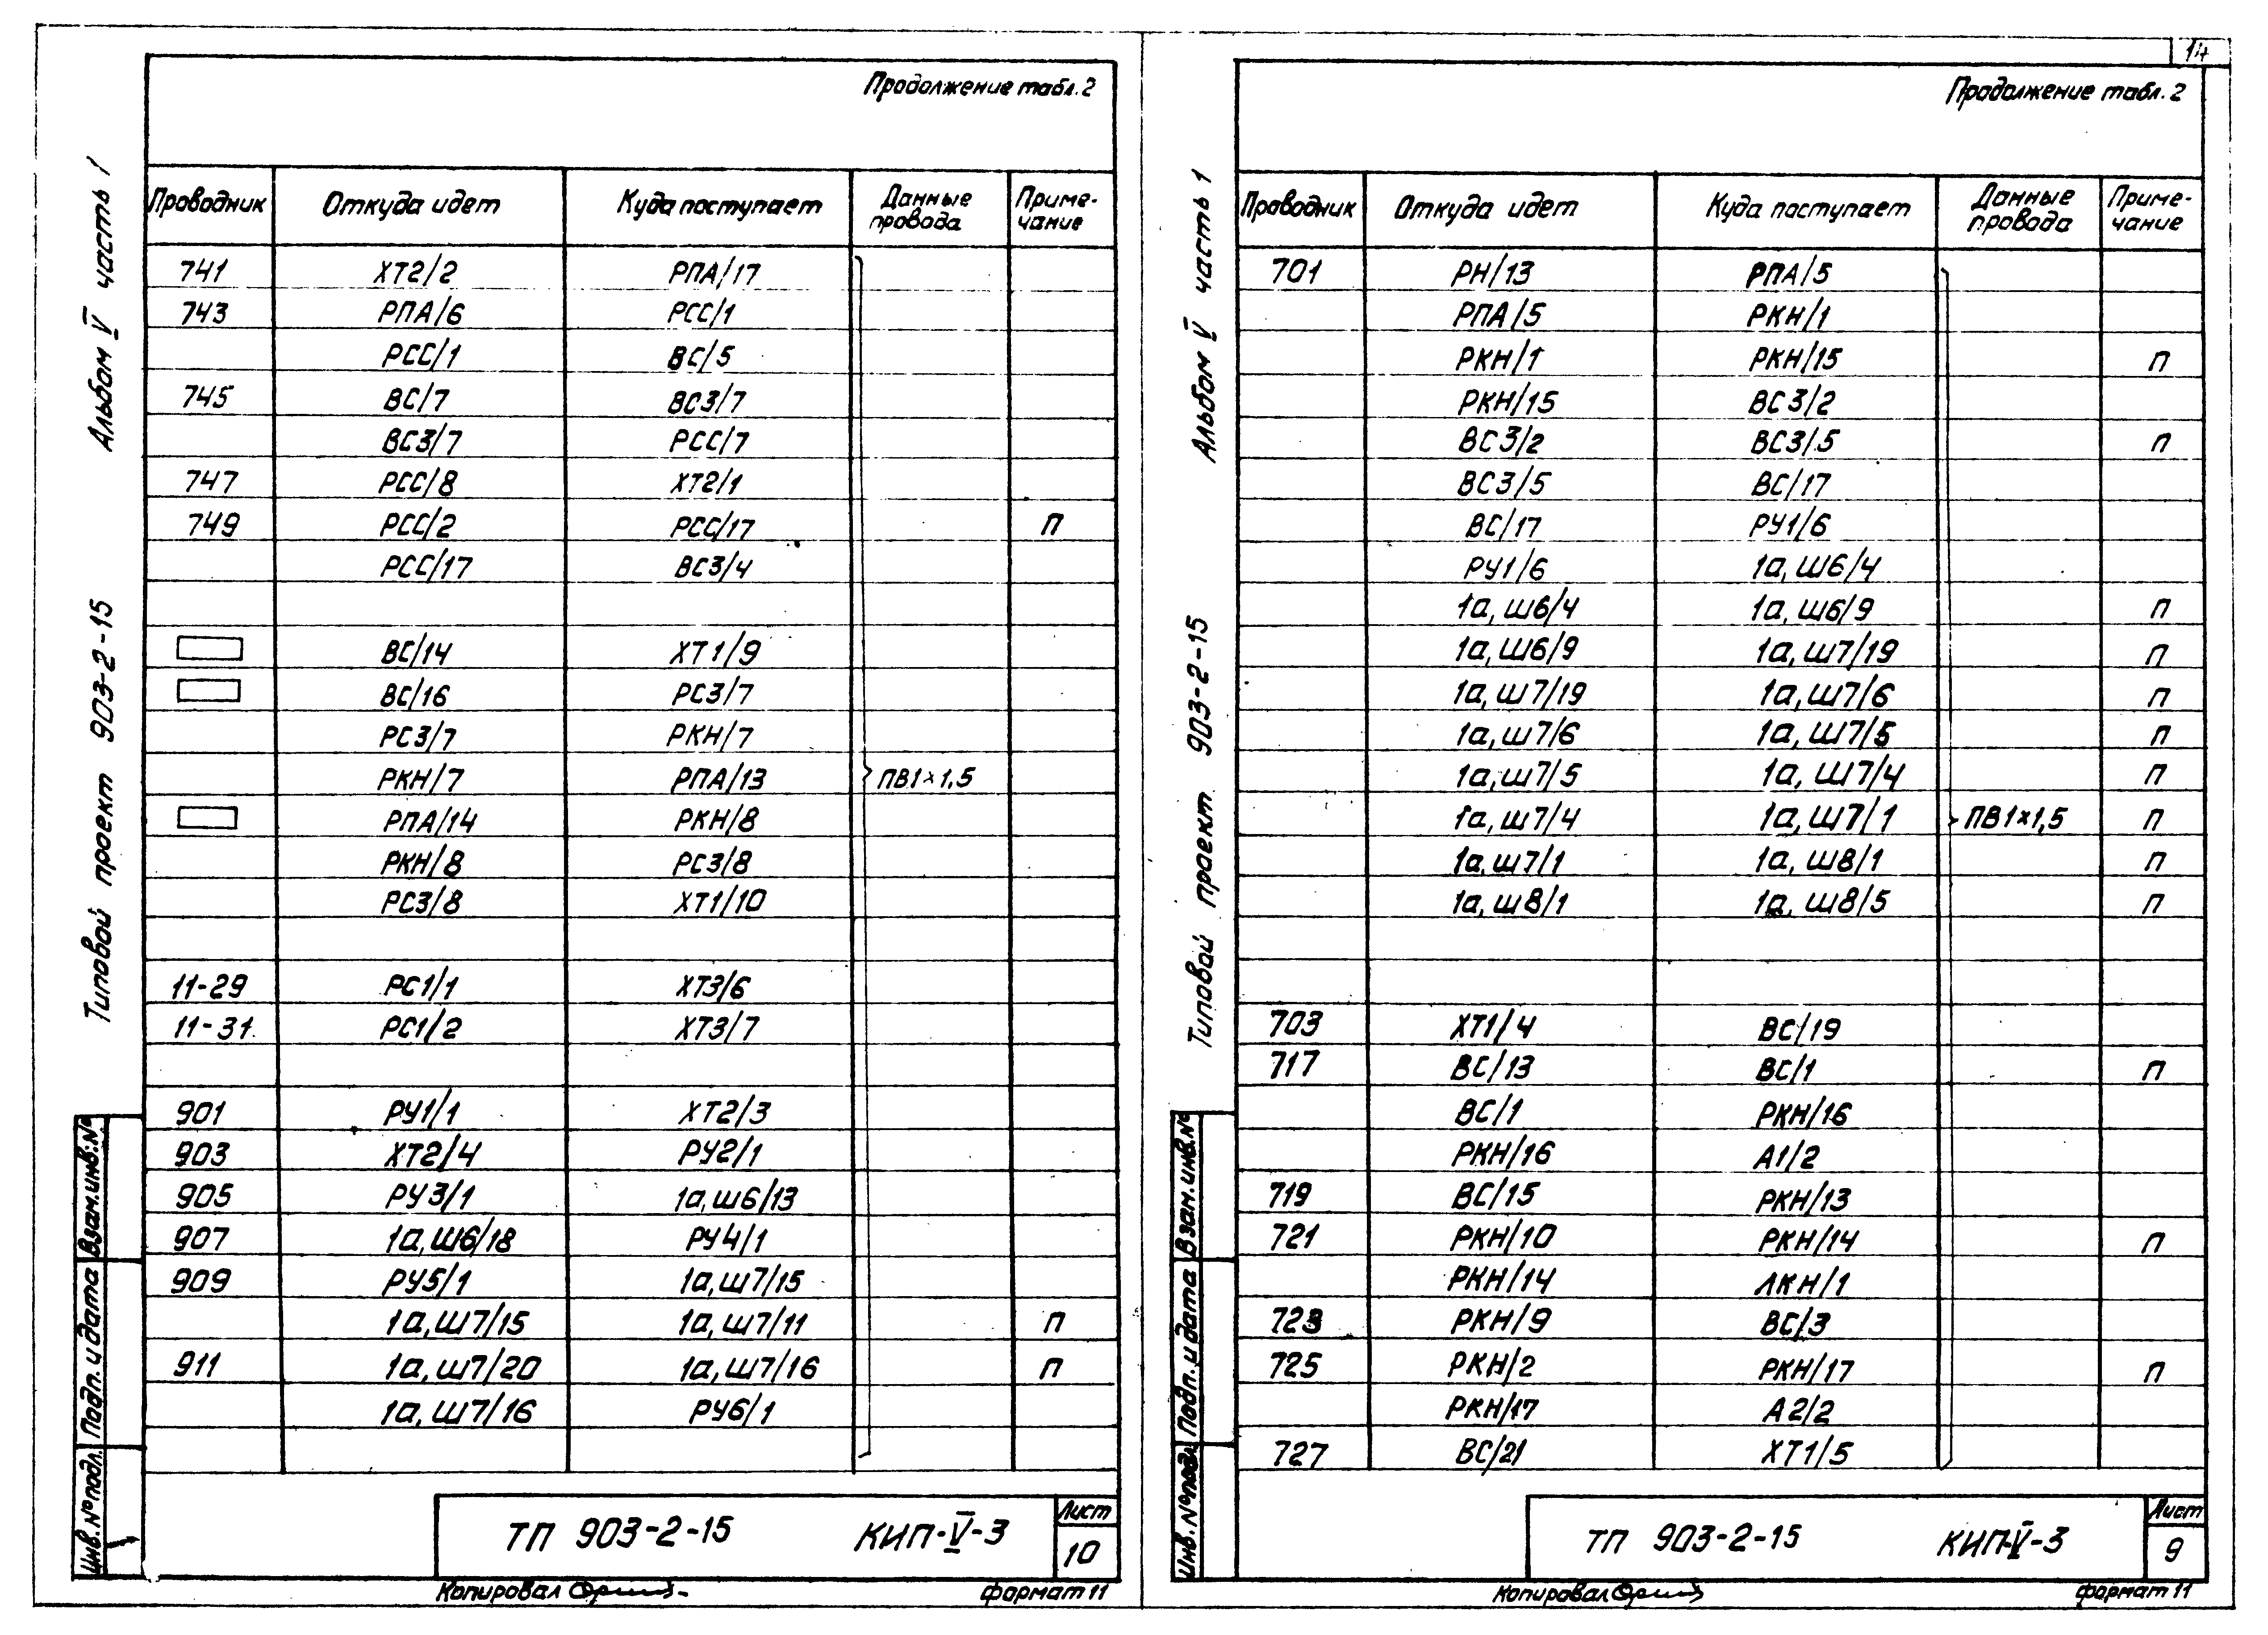 14
Продолжение табл. 2
Проводник Откуда идет Куда поступает Данные провода Приме-чание
741 ХТ2/2 РПА/17
743 РПА/6 РСС/1
РСС/1 ВС/5
745 ВС/7 ВС3/7
ВС3/7 РСС/7
747 РСС/8 ХТ2/1
749 РСС/2 РСС/17 П
РСС/17 ВС3/4
ВС/14 ХТ1/9
ВС/16 РС3/7
РС3/7 РКН/7
РКН/7 РПА/13 ПВ1×1,5
РПА/14 РКН/8
РКН/8 РС3/8
РС3/8 ХТ1/10
11-29 РС1/1 ХТ3/6
11-31 РС1/2 ХТ3/7
901 РУ1/1 ХТ2/3
903 ХТ2/4 РУ2/1
905 РУ3/1 1а, ш6/13
907 1а, ш6/18 РУ4/1
909 РУ5/1 1а, ш7/15
1а, ш7/15 1а, ш7/11 П
911 1а, ш7/20 1а, ш7/16 П
1а, ш7/16 РУ6/1
ТП 903-2-15 КИП-V-3 Лист 10
Копировал формат 11
Альбом V часть 1
Типовой проект 903-2-15
Взам.инв.№
Подп. и дата
Инв.№подл.
Продолжение табл. 2
Проводник Откуда идет Куда поступает Данные провода Приме-чание
701 РН/13 РПА/5
РПА/5 РКН/1
РКН/1 РКН/15 П
РКН/15 ВС3/2
ВС3/2 ВС3/5 П
ВС3/5 ВС/17
ВС/17 РУ1/6
РУ1/6 1а, ш6/4
1а, ш6/4 1а, ш6/9 П
1а, ш6/9 1а, ш7/19 П
1а, ш7/19 1а, ш7/6 П
1а, ш7/6 1а, ш7/5 П
1а, ш7/5 1а, ш7/4 П
1а, ш7/4 1а, ш7/1 ПВ1×1,5 П
1а, ш7/1 1а, ш8/1 П
1а, ш8/1 1а, ш8/5 П
703 ХТ1/4 ВС/19
717 ВС/13 ВС/1 П
ВС/1 РКН/16
РКН/16 А1/2
719 ВС/15 РКН/13
721 РКН/10 РКН/14 П
РКН/14 ЛКН/1
723 РКН/9 ВС/3
725 РКН/2 РКН/17 П
РКН/17 А2/2
727 ВС/21 ХТ1/5
ТП 903-2-15 КИП-V-3 Лист 9
Копировал формат 11
Альбом V часть 1
Типовой проект 903-2-15
Взам.инв.№
Подп. и дата
Инв.№подл.